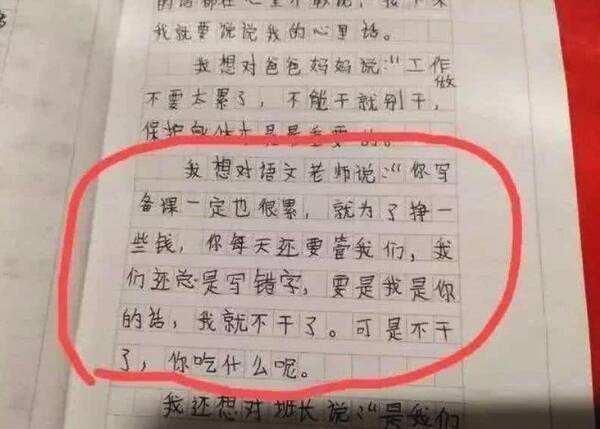 的话都在心里不敢说，接下来
我就要说说我的心里话。
我想对爸爸妈妈说：“工作做
不要太累了，不能干就别干，
保护身体才是最重要的。
我想对语文老师说：“你写
备课一定也很累，就为了挣一
些钱，你每天还要管我们，我
们还总是写错字，要是我是你
的话，我就不干了。可是不干
了，你吃什么呢。
我还想对班长说：“是我们